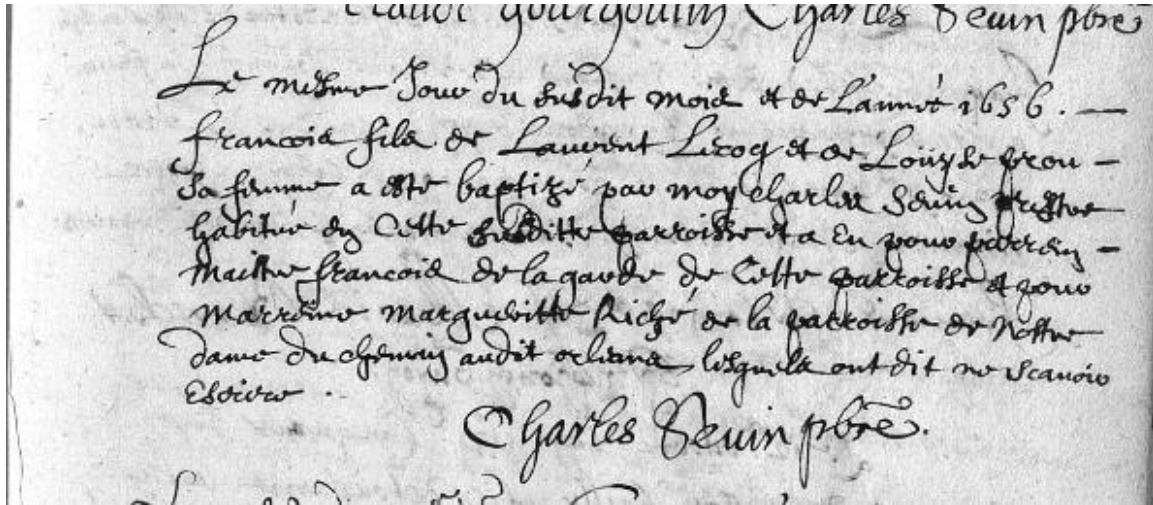 Claude gourgouin Charles Sevin pbre
Le mesme Jour du susdit mois et de L'année 1656. —
francois fils de Laurent Lecoq et de Louyse prou —
sa femme a esté baptizé par moy charles Sevin prestre
habitué en Cette susditte parroisse et a Eu pour parrein —
Maittre francois de la garde de Cette parroisse et pour
Marreine Margueritte Riché de la parroisse de Nostre
dame du chemin audit orleans lesquels ont dit ne scavoir
Escrire .
Charles Sevin pbre.